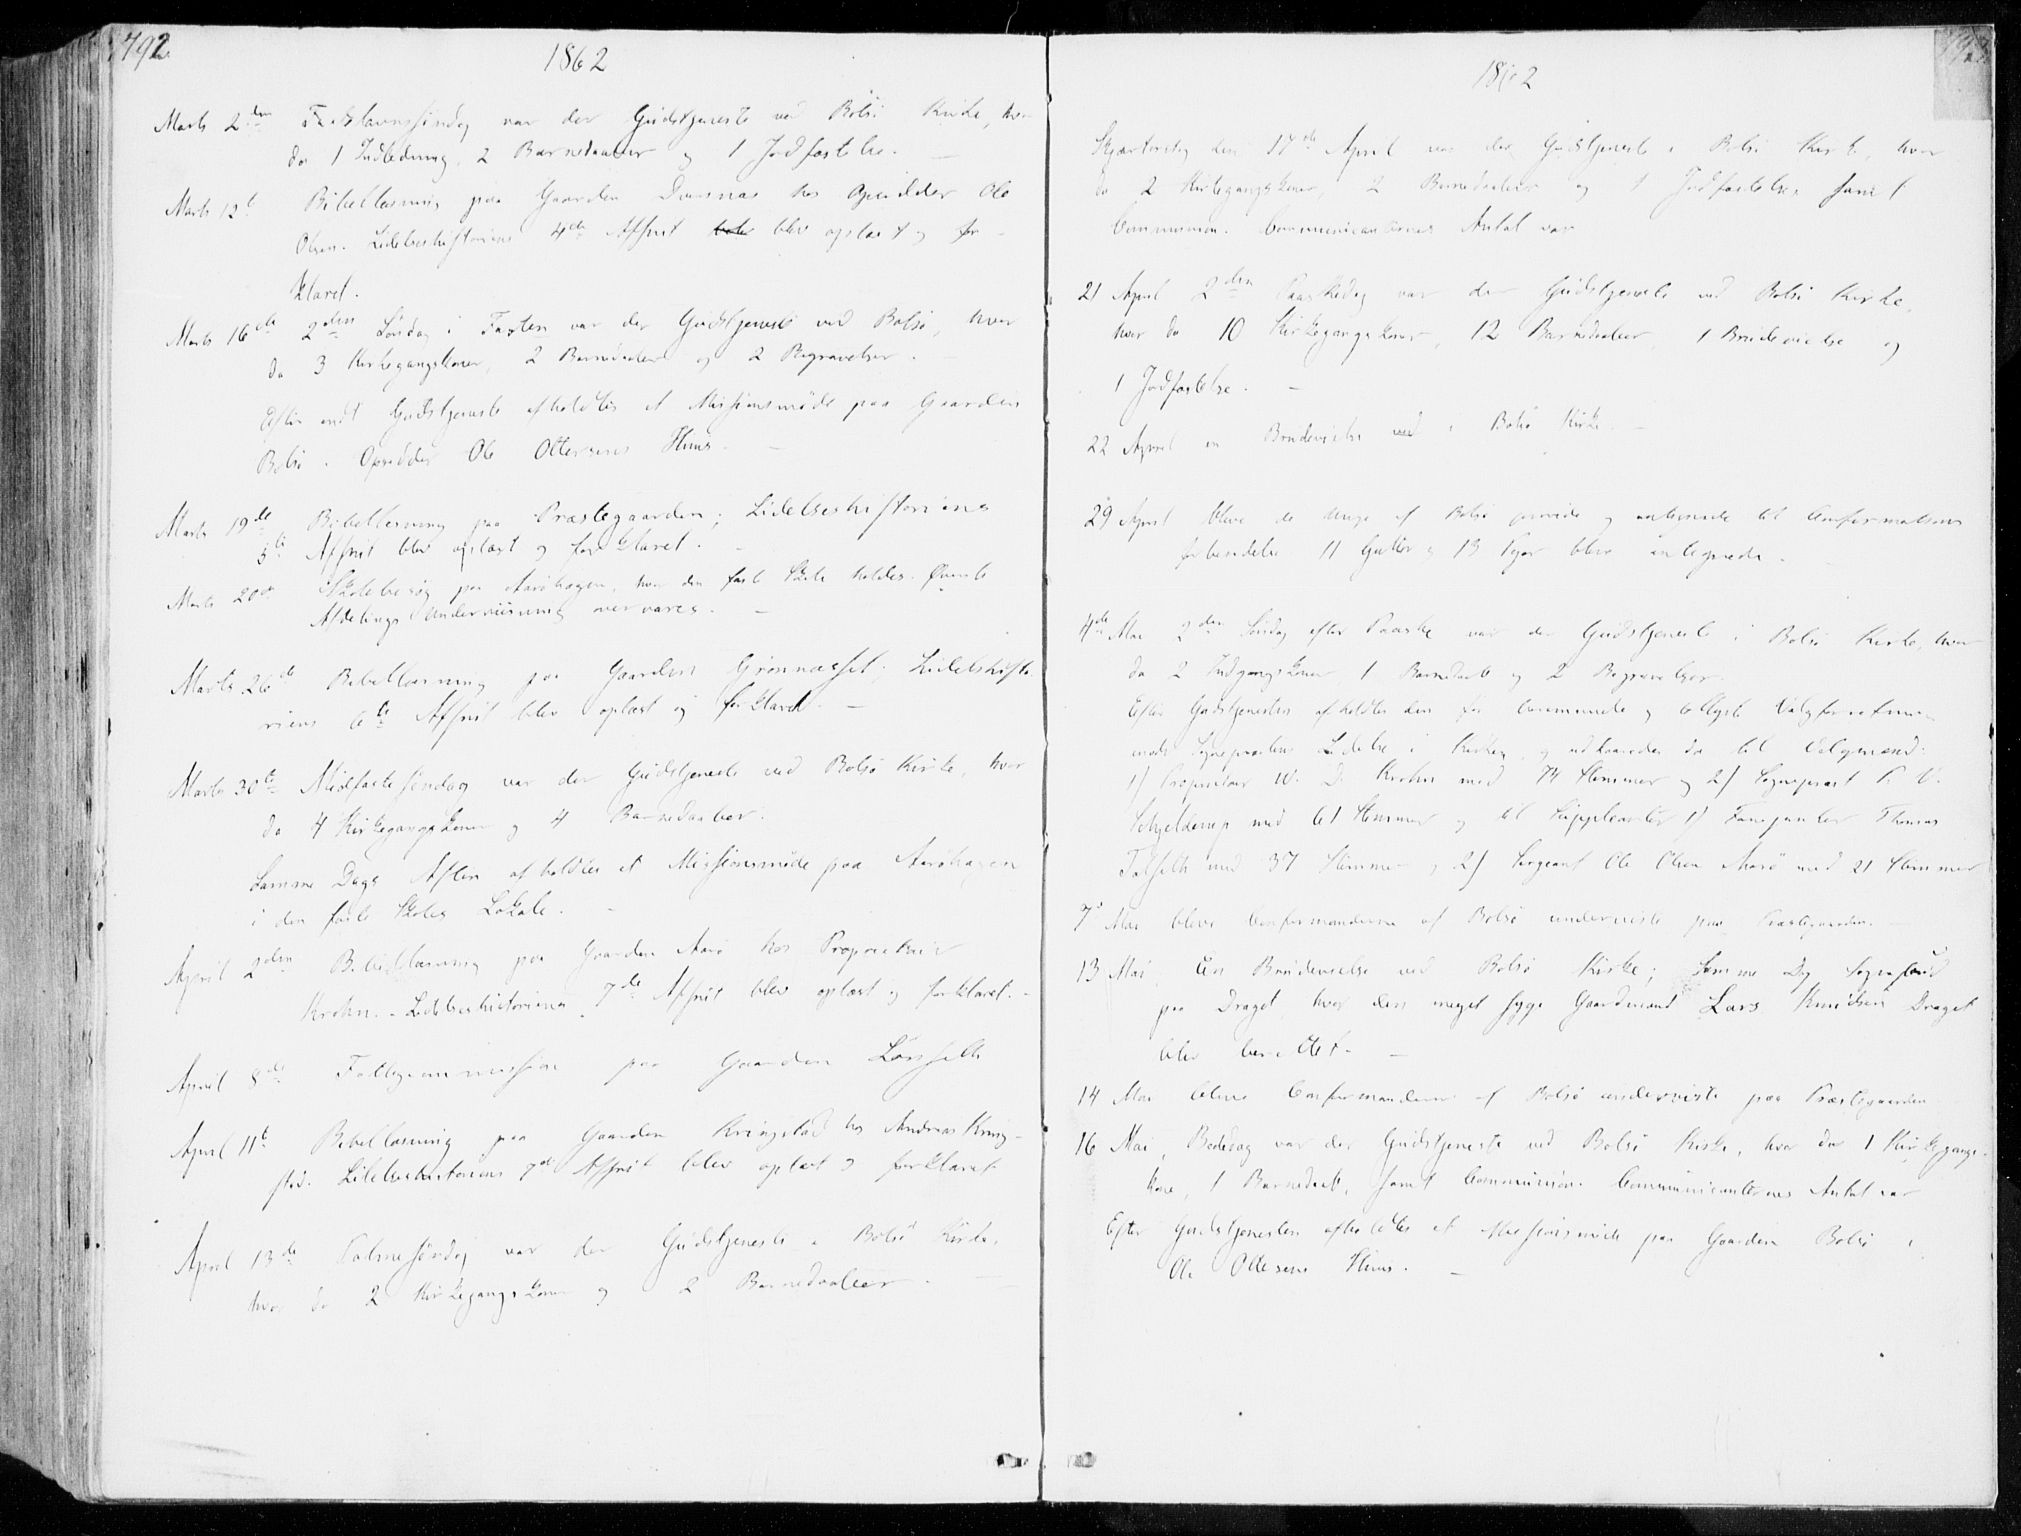 492
1862
Marts 2den Fastelavnssöndag var der Gudstjeneste ved Bolsö Kirke, hvor
da 1 Indledning, 2 Barnedaaber og 1 Jordfæstelse. —
Marts 12te Bibellæsning paa Gaarden Dversnæs hos Opsidder Ole
Olsen. Lidelseshistoriens 4de Afsnit blev oplæst og for-
klaret.
Marts 16de 2den Söndag i Fasten var der Gudstjeneste ved Bolsö, hvor
da 3 Kirkegangskoner, 2 Barnedaaber og 2 Begravelser. —
Efter endt Gudstjeneste afholdtes et Missionsmöde paa Gaarden
Bolsö i Opsidder Ole Ottersens Huus. —
Marts 19de Bibellæsning paa Præstegaarden; Lidelseshistoriens
5te Afsnit blev oplæst og forklaret. —
Marts 20de Skolebesög paa Aaröhagen, hvor den faste Skole holdes. Överste
Afdelings Underviisning overværes. —
Marts 26de Bibellæsning paa Gaarden Grönnæsset; Lidelseshisto
riens 6te Afsnit blev oplæst og forklaret. —
Marts 30te Midfastesöndag var der Gudstjeneste ved Bolsö Kirke, hvor
da 4 Kirkegangskoner og 4 Barnedaaber.
Samme Dags Aften afholdtes et Missionsmöde paa Aaröhagen
i den faste Skoles Lokale. —
April 2den Bibellæsning paa Gaarden Aarö hos Proprietair
Krohn. - Lidelseshistoriens 7de Afsnit blev oplæst og forklaret. -
April 8de Fattigcommission paa Gaarden Lönseth
April 11te Bibellæsning paa Gaarden Kringstad hos Andreas Kring-
stad. Lidelseshistoriens 7de Afsnit blev oplæst og forklaret
April 13de Palmesöndag var der Gudstjeneste i Bolsö Kirke,
hvor da 2 Kirkegangskoner og 2 Barnedaaber. —
1862
Skjærtorsdag den 17de April var der Gudstjeneste i Bolsö Kirke, hvor
da 2 Kirkegangskoner, 2 Barnedaaber og 1 Jordfæstelse samt
Communion. Communicanternes Antal var
21 April 2den Paaskedag var der Gudstjeneste ved Bolsö Kirke,
hvor da 10 Kirkegangskoner, 12 Barnedaaber, 1 Brudevielse og
1 Jordfæstelse. —
22 April en Brudevielse ved i Bolsö Kirke. —
29 April bleve de Unge af Bolsö prövede og antegnede til Confirmations
forberedelse 11 Gutter og 13 Piger blev antegnede. —
4de Mai 2den Söndag efter Paaske var der Gudstjeneste i Bolsö Kirke, hvor
da 2 Indgangskoner, 1 Barnedaab og 2 Begravelser.
Efter Gudstjenesten afholdtes den för berammede og tillyste Valgforretning
under Sognepræstens Ledelse i Kirken, og udkaaredes da til Valgmænd:
1) Proprietair W. D. Krohn med 74 Stemmer og 2) Sognepræst P. V.
Schjelderup med 61 Stemmer og til Suppleanter 1) Fanejunker Thomas
med 37 Stemmer og 2) Sergeant Ole Olsen Aarö med 21 Stemmer
7de Mai bleve Confirmanderne af Bolsö underviste paa Præstegaarden. —
13 Mai, Een Brudevielse ved Bolsö Kirke; Samme Dag Sognebud
paa Draget, hvor den meget syge Gaardmand Lars Knudsen Draget
blev berettet. —
14 Mai bleve Confirmanderne af Bolsö underviste paa Præstegaarden
16 Mai, Bededag var der Gudstjeneste ved Bolsö Kirke, hvor da 1 Kirkegangs-
kone, 1 Barnedaab, samt Communion. Communicanternes Antal var
Efter Gudstjenesten afholdtes et Missionsmöde paa Gaarden Bolsö i
Ole Ottersens Huus. —